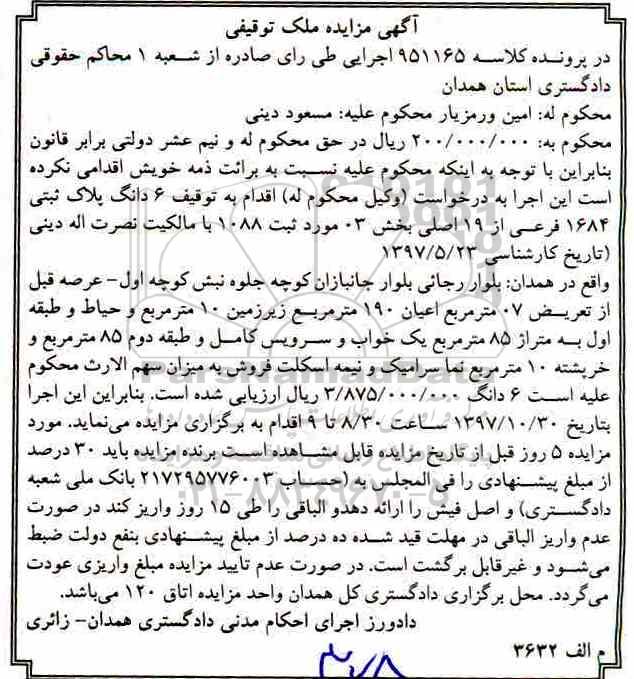 آگهی مزایده ملک توقیفی
در پرونده کلاسه ۹۵۱۱۶۵ اجرایی طی رای صادره از شعبه ۱ محاکم حقوقی
دادگستری استان همدان
محکوم له: امین ورمزیار محکوم علیه: مسعود دینی
محکوم به: ۲۰۰/۰۰۰/۰۰۰ ریال در حق محکوم له و نیم عشر دولتی برابر قانون
بنابراین با توجه به اینکه محکوم علیه نسبت به برائت ذمه خویش اقدامی نکرده
است این اجرا به درخواست (وکیل محکوم له) اقدام به توقیف ۶ دانگ پلاک ثبتی
۱۶۸۴ فرعی از ۱۹ اصلی بخش ۰۳ مورد ثبت ۱۰۸۸ با مالکیت نصرت اله دینی
(تاریخ کارشناسی ۱۳۹۷/۵/۲۳
واقع در همدان: بلوار رجائی بلوار جانبازان کوچه جلوه نبش کوچه اول- عرصه قبل
از تعریض ۰۷ مترمربع اعیان ۱۹۰ مترمربع زیرزمین ۱۰ مترمربع و حیاط و طبقه
اول به متراژ ۸۵ مترمربع یک خواب و سرویس کامل و طبقه دوم ۸۵ مترمربع و
خرپشته ۱۰ مترمربع نما سرامیک و نیمه اسکلت فروش به میزان سهم الارث محکوم
علیه است ۶ دانگ ۳/۸۷۵/۰۰۰/۰۰۰ ریال ارزیابی شده است. بنابراین این اجرا
بتاریخ ۱۳۹۷/۱۰/۳۰ ساعت ۸/۳۰ تا ۹ اقدام به برگزاری مزایده می‌نماید. مورد
مزایده ۵ روز قبل از تاریخ مزایده قابل مشاهده است برنده مزایده باید ۳۰ درصد
از مبلغ پیشنهادی را فی المجلس به (حساب ۲۱۷۲۹۵۷۷۶۰۰۳ بانک ملی شعبه
دادگستری) و اصل فیش را ارائه دهدو الباقی را طی ۱۵ روز واریز کند در صورت
عدم واریز الباقی در مهلت قید شده ده درصد از مبلغ پیشنهادی بنفع دولت ضبط
می‌شود و غیرقابل برگشت است. در صورت عدم تایید مزایده مبلغ واریزی عودت
می‌گردد. محل برگزاری دادگستری کل همدان واحد مزایده اتاق ۱۲۰ می‌باشد.
دادورز اجرای احکام مدنی دادگستری همدان- زائری
م الف ۳۶۳۲
ParsNamadData
۰۲۱-۸۸۳۴۹۶۷۰-۵